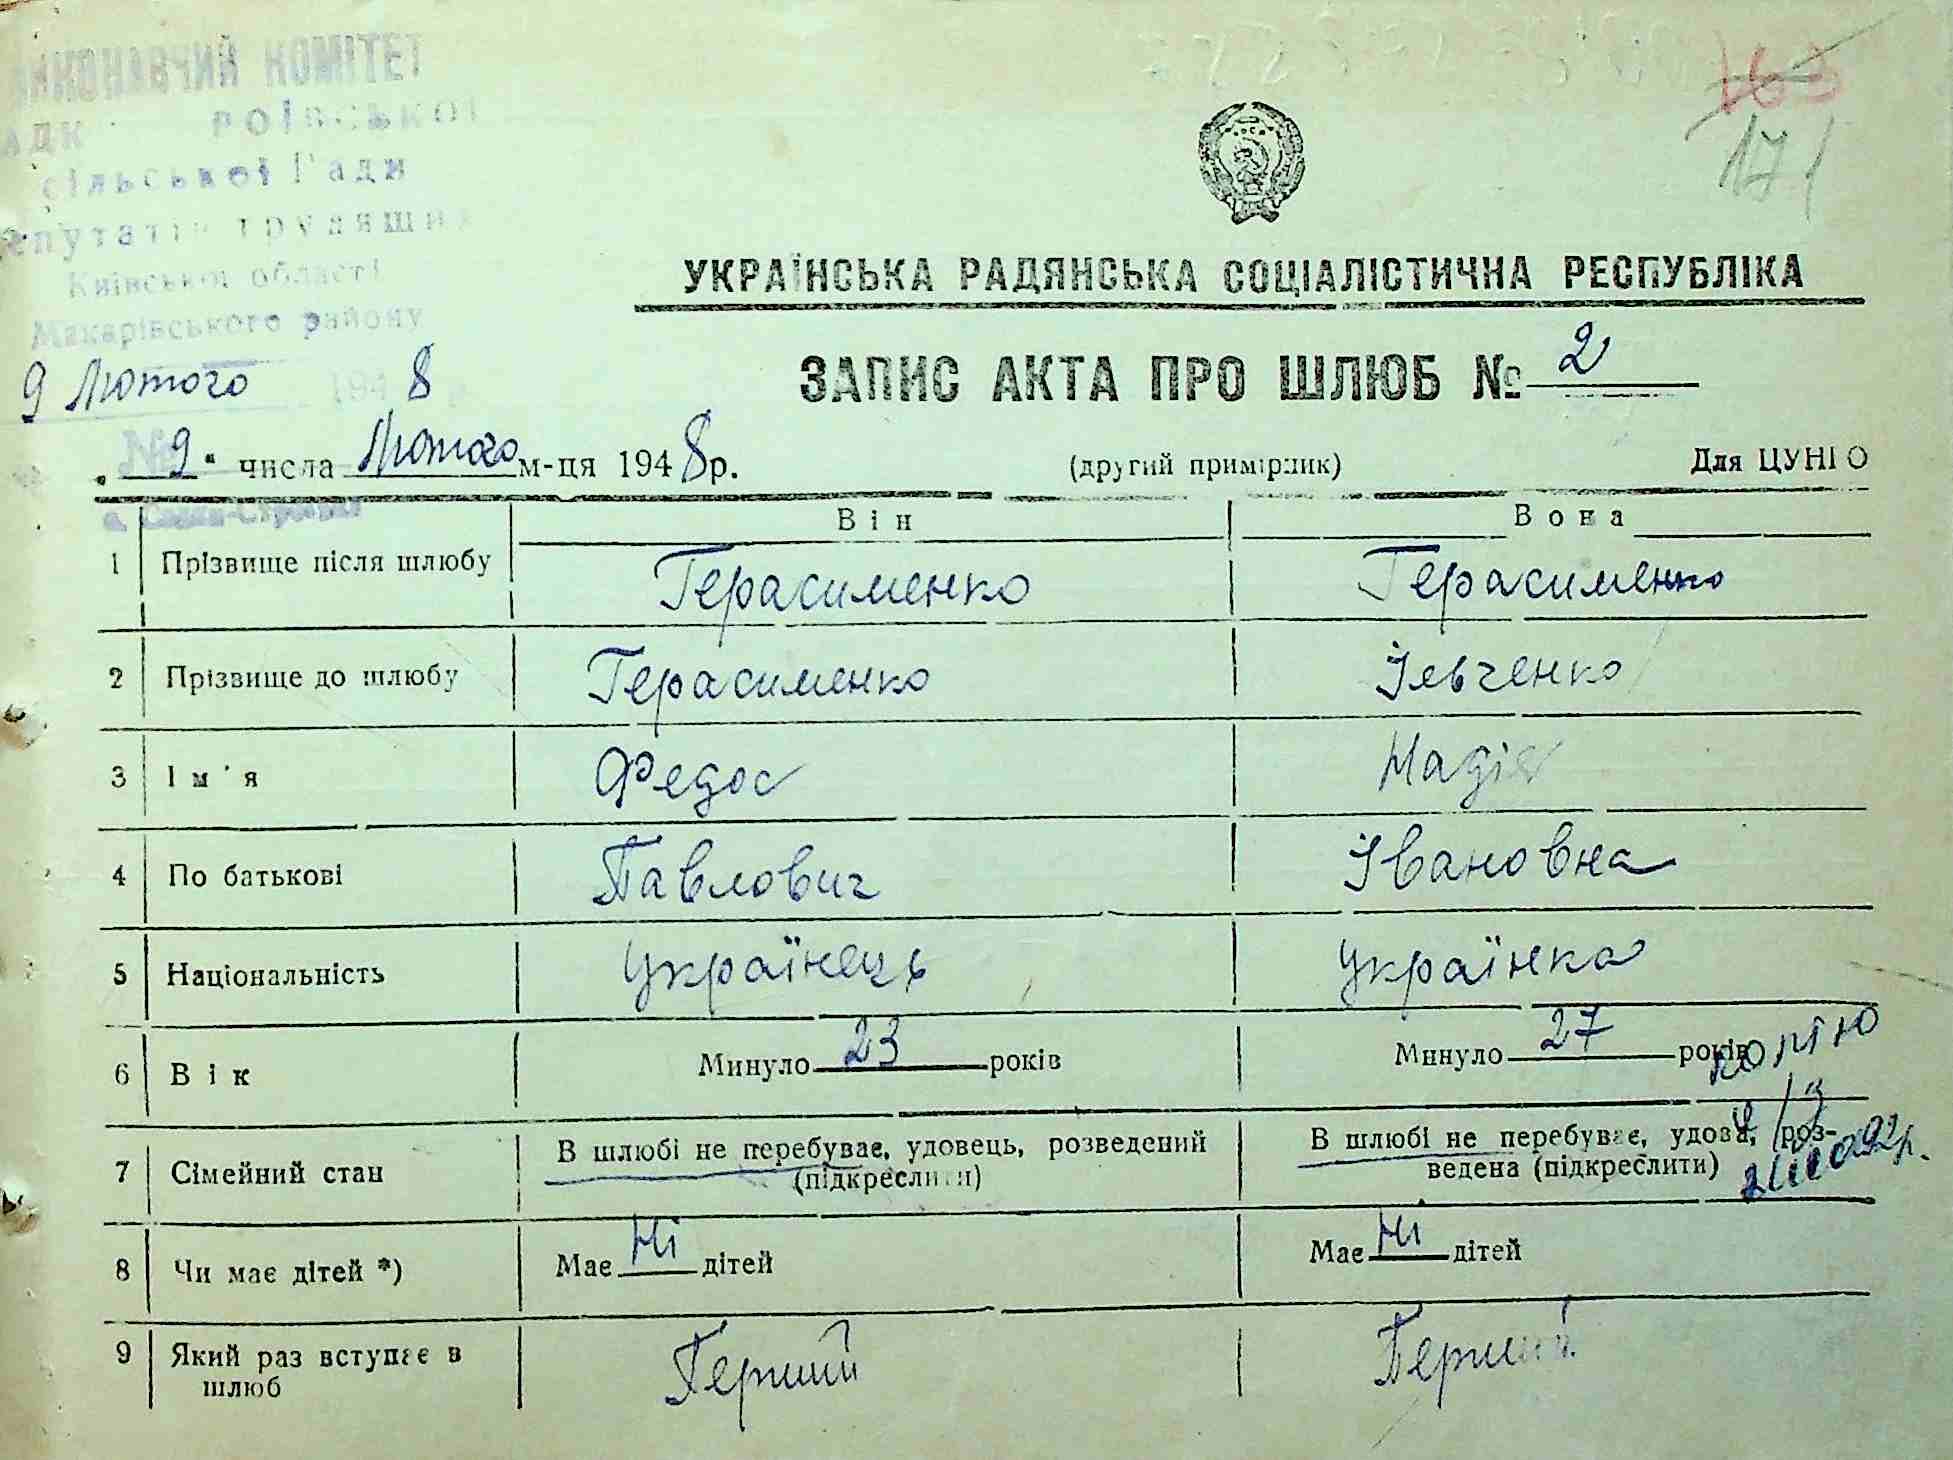 ВИКОНАВЧИЙ КОМІТЕТ
сільської Ради
депутатів трудящих
Київської області
Макарівського району
9 Лютого 1948
№
163
171
УКРАЇНСЬКА РАДЯНСЬКА СОЦІАЛІСТИЧНА РЕСПУБЛІКА
ЗАПИС АКТА ПРО ШЛЮБ № 2
„ 9 “ числа Лютого м-ця 1948 р. (другий примірник) Для ЦУНГО
Він Вона
1 Прізвище після шлюбу Герасименко Герасименко
2 Прізвище до шлюбу Герасименко Ільченко
3 Ім'я Федос Надія
4 По батькові Павлович Івановна
5 Національність Українець Українка
6 Вік Минуло 23 років Минуло 27 років
7 Сімейний стан В шлюбі не перебуває, удовець, розведений (підкреслити) В шлюбі не перебуває, удова, роз-
ведена (підкреслити)
8 Чи має дітей *) Має Ні дітей Має Ні дітей
9 Який раз вступає в Перший Перший
шлюб